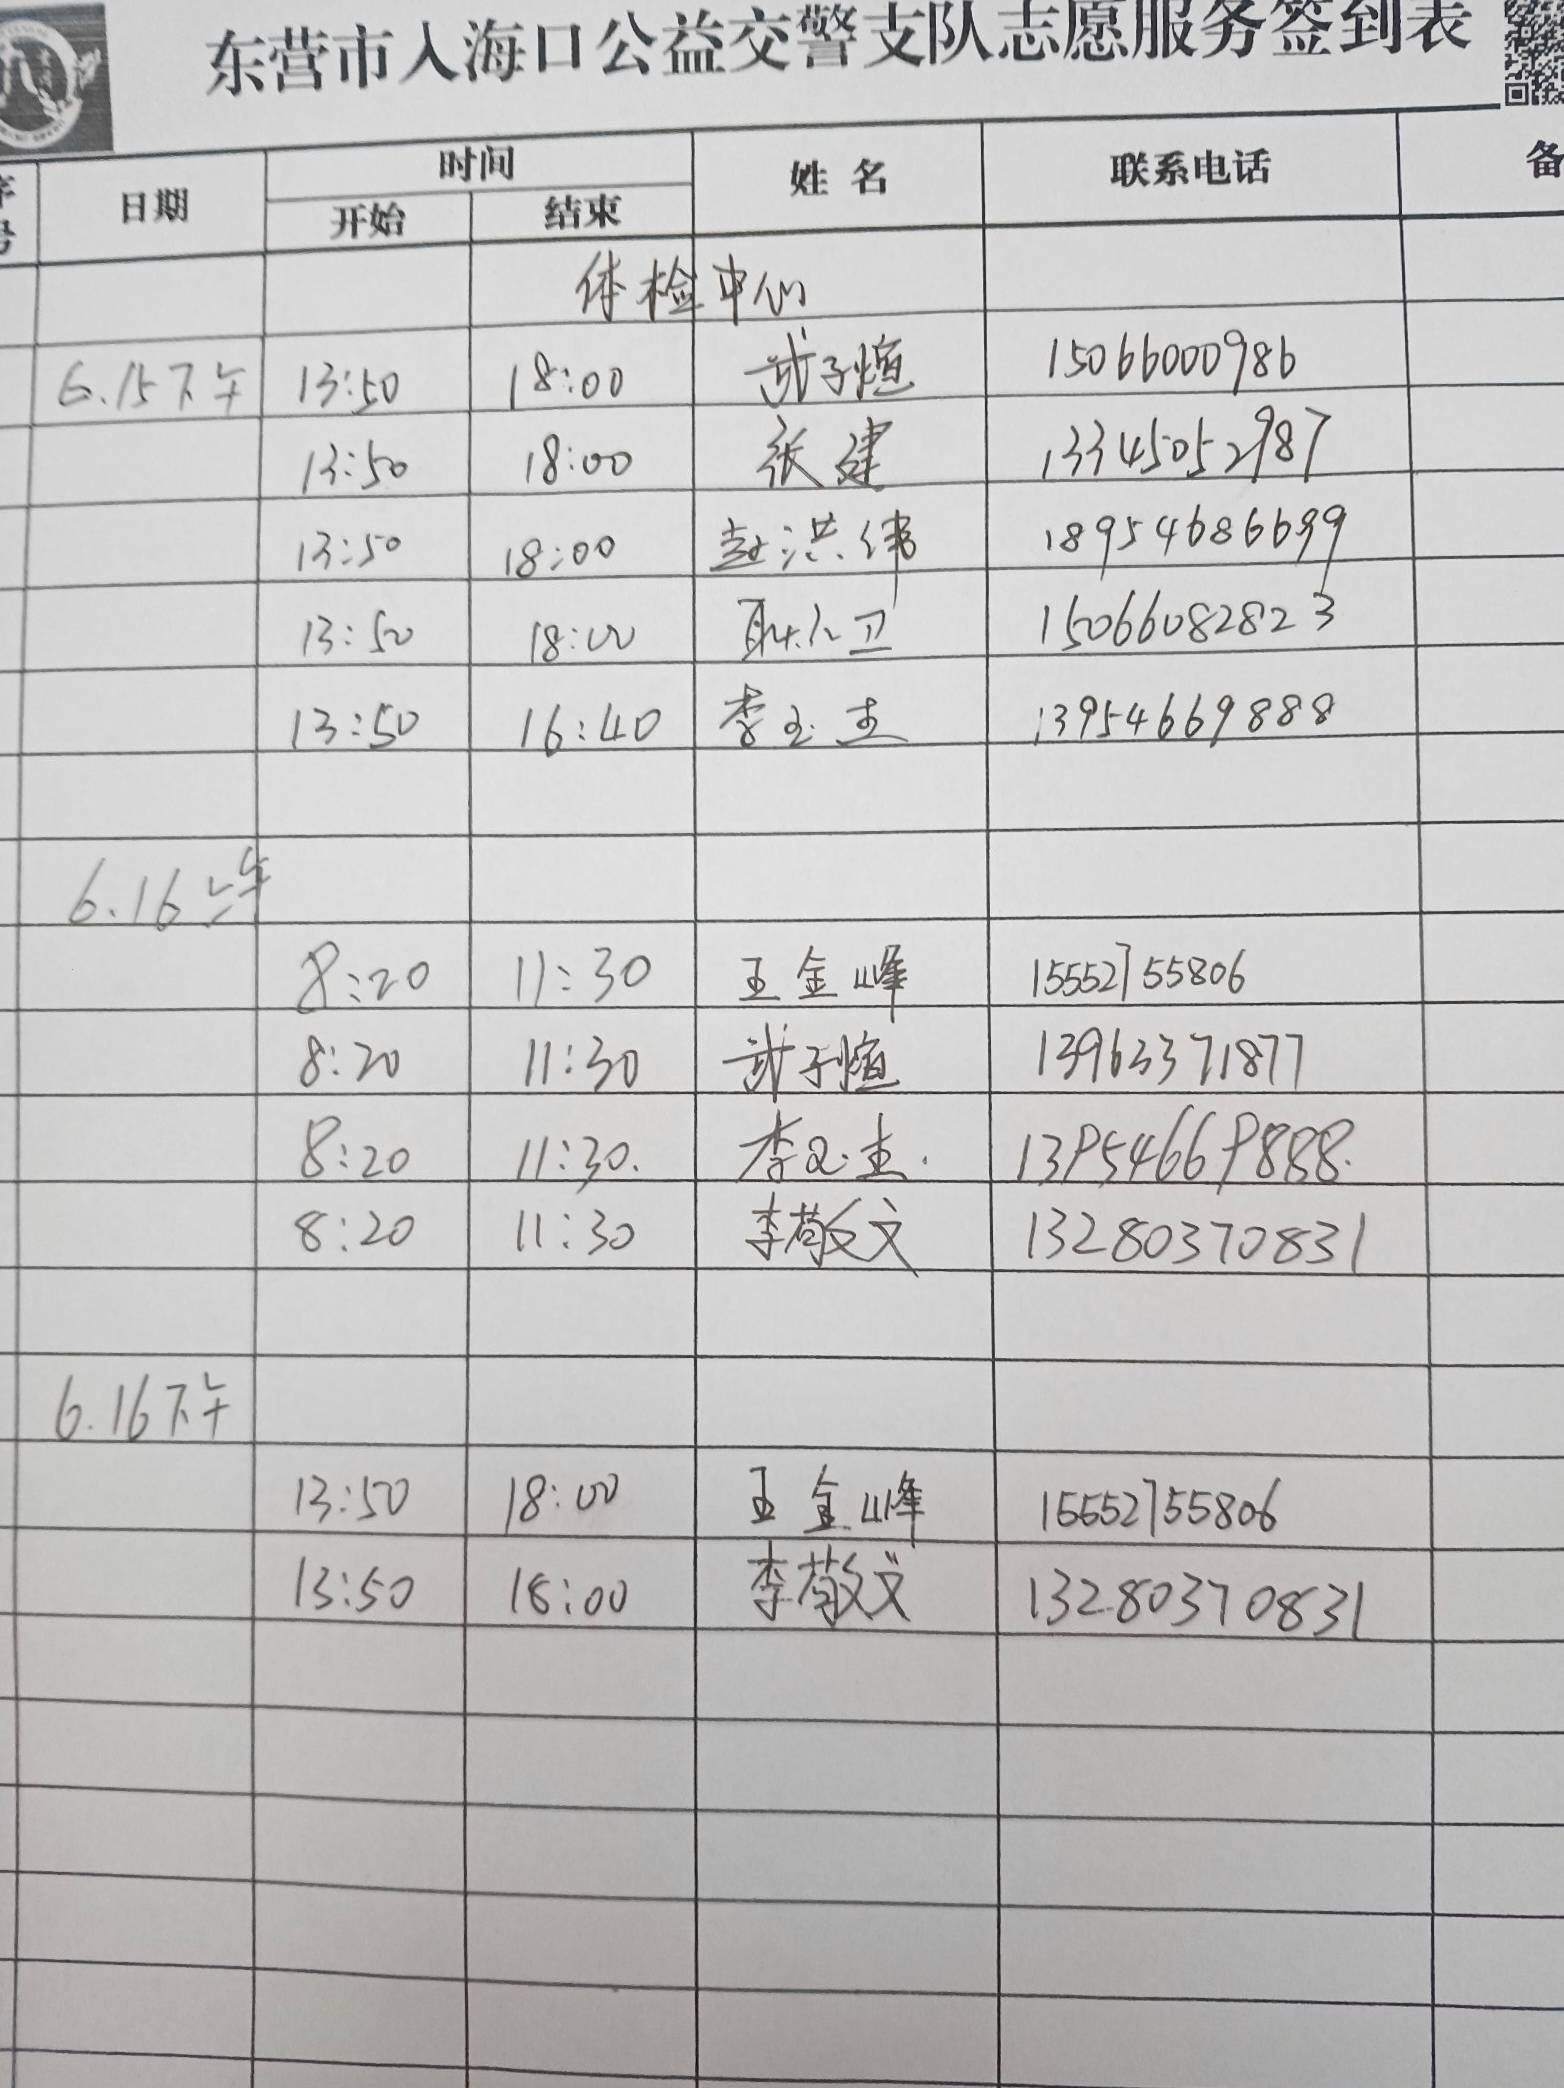 东营市入海口公益交警支队志愿服务签到表
序号 日期 时间 姓名 联系电话 备
开始 结束
体检中心
6.15下午 13:50 18:00 武子煊 15066000986
13:50 18:00 张建 13345052987
13:50 18:00 赵洪伟 18954686699
13:50 18:00 卫 15066082823
13:50 16:40 李玉杰 13954669888
6.16上午
8:20 11:30 王金峰 15552755806
8:20 11:30 武子煊 13963371877
8:20 11:30. 李玉杰. 13954669888.
8:20 11:30 李敬文 13280370831
6.16下午
13:50 18:00 王金峰 15552755806
13:50 18:00 李敬文 13280370831